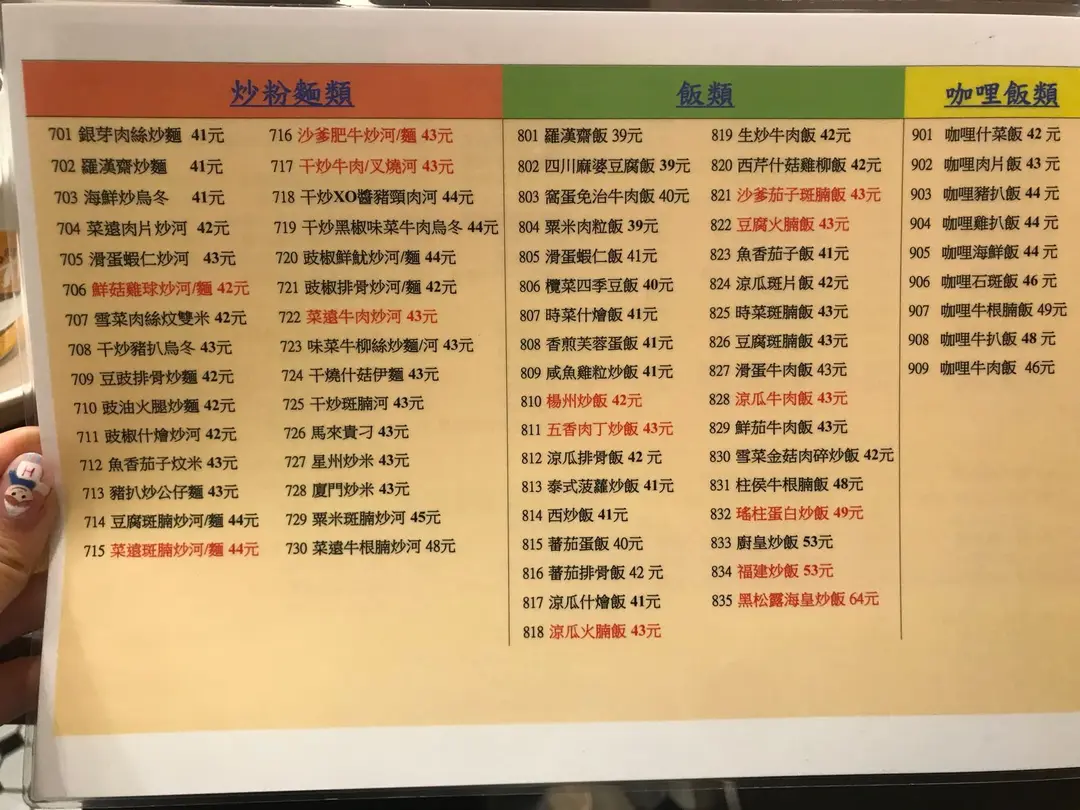 炒粉麵類
701 銀芽肉絲炒麵 41元
702 羅漢齋炒麵 41元
703 海鮮炒烏冬 41元
704 菜遠肉片炒河 42元
705 滑蛋蝦仁炒河 43元
706 鮮菇雞球炒河/麵 42元
707 雪菜肉絲炆雙米 42元
708 干炒豬扒烏冬 43元
709 豆豉排骨炒麵 42元
710 豉油火腿炒麵 42元
711 豉椒什燴炒河 42元
712 魚香茄子炆米 43元
713 豬扒炒公仔麵 43元
714 豆腐斑腩炒河/麵 44元
715 菜遠斑腩炒河/麵 44元
716 沙爹肥牛炒河/麵 43元
717 干炒牛肉/叉燒河 43元
718 干炒XO醬豬頸肉河 44元
719 干炒黑椒味菜牛肉烏冬 44元
720 豉椒鮮魷炒河/麵 44元
721 豉椒排骨炒河/麵 42元
722 菜遠牛肉炒河 43元
723 味菜牛柳絲炒麵/河 43元
724 干燒什菇伊麵 43元
725 干炒斑腩河 43元
726 馬來貴刁 43元
727 星州炒米 43元
728 廈門炒米 43元
729 粟米斑腩炒河 45元
730 菜遠牛根腩炒河 48元
飯類
801 羅漢齋飯 39元
802 四川麻婆豆腐飯 39元
803 窩蛋免治牛肉飯 40元
804 粟米肉粒飯 39元
805 滑蛋蝦仁飯 41元
806 欖菜四季豆飯 40元
807 時菜什燴飯 41元
808 香煎芙蓉蛋飯 41元
809 咸魚雞粒炒飯 41元
810 楊州炒飯 42元
811 五香肉丁炒飯 43元
812 涼瓜排骨飯 42 元
813 泰式菠蘿炒飯 41元
814 西炒飯 41元
815 蕃茄蛋飯 40元
816 蕃茄排骨飯 42 元
817 涼瓜什燴飯 41元
818 涼瓜火腩飯 43元
819 生炒牛肉飯 42元
820 西芹什菇雞柳飯 42元
821 沙爹茄子斑腩飯 43元
822 豆腐火腩飯 43元
823 魚香茄子飯 41元
824 涼瓜斑片飯 42元
825 時菜斑腩飯 43元
826 豆腐斑腩飯 43元
827 滑蛋牛肉飯 43元
828 涼瓜牛肉飯 43元
829 鮮茄牛肉飯 43元
830 雪菜金菇肉碎炒飯 42元
831 柱侯牛根腩飯 48元
832 瑤柱蛋白炒飯 49元
833 廚皇炒飯 53元
834 福建炒飯 53元
835 黑松露海皇炒飯 64元
咖哩飯類
901 咖哩什菜飯 42 元
902 咖哩肉片飯 43 元
903 咖哩豬扒飯 44 元
904 咖哩雞扒飯 44 元
905 咖哩海鮮飯 44 元
906 咖哩石斑飯 46 元
907 咖哩牛根腩飯 49元
908 咖哩牛扒飯 48 元
909 咖哩牛肉飯 46元